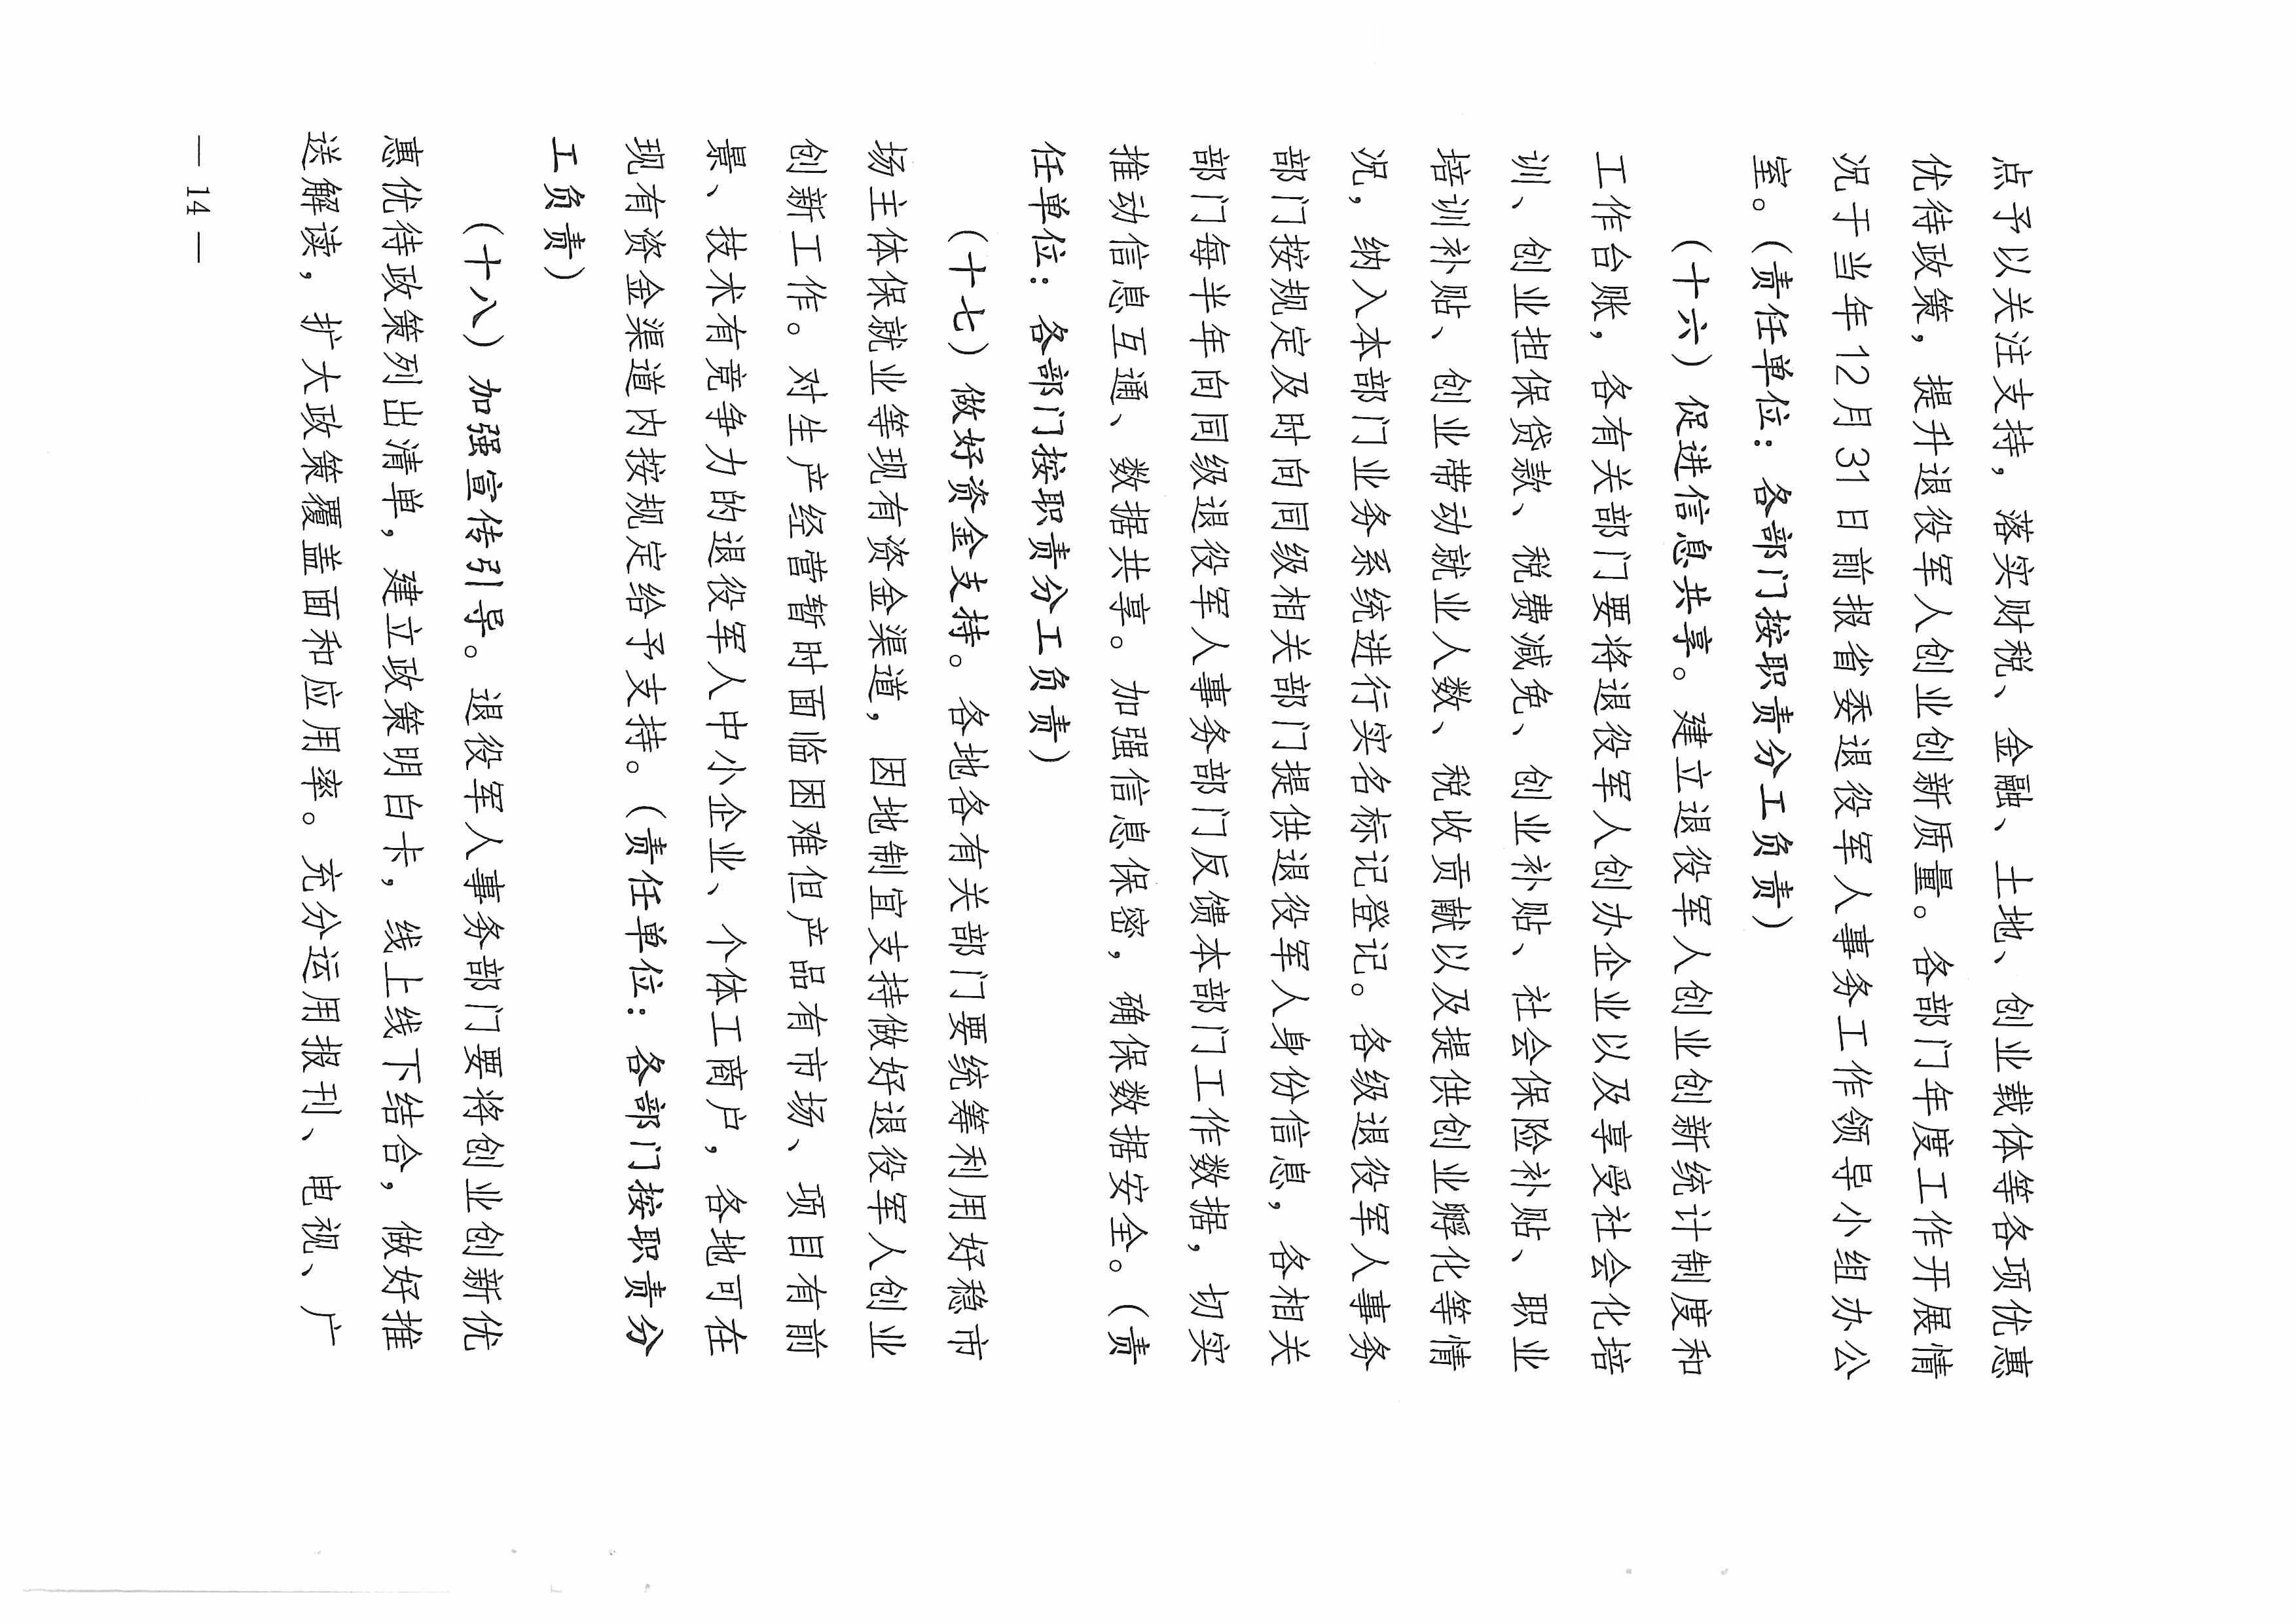 点予以关注支持，落实财税、金融、土地、创业载体等各项优惠
优待政策，提升退役军人创业创新质量。各部门年度工作开展情
况于当年12月31日前报省委退役军人事务工作领导小组办公
室。（责任单位：各部门按职责分工负责）
（十六）促进信息共享。建立退役军人创业创新统计制度和
工作台账，各有关部门要将退役军人创办企业以及享受社会化培
训、创业担保贷款、税费减免、创业补贴、社会保险补贴、职业
培训补贴、创业带动就业人数、税收贡献以及提供创业孵化等情
况，纳入本部门业务系统进行实名标记登记。各级退役军人事务
部门按规定及时向同级相关部门提供退役军人身份信息，各相关
部门每半年向同级退役军人事务部门反馈本部门工作数据，切实
推动信息互通、数据共享。加强信息保密，确保数据安全。（责
任单位：各部门按职责分工负责）
（十七）做好资金支持。各地各有关部门要统筹利用好稳市
场主体保就业等现有资金渠道，因地制宜支持做好退役军人创业
创新工作。对生产经营暂时面临困难但产品有市场、项目有前
景、技术有竞争力的退役军人中小企业、个体工商户，各地可在
现有资金渠道内按规定给予支持。（责任单位：各部门按职责分
工负责）
（十八）加强宣传引导。退役军人事务部门要将创业创新优
惠优待政策列出清单，建立政策明白卡，线上线下结合，做好推
送解读，扩大政策覆盖面和应用率。充分运用报刊、电视、广
— 14 —